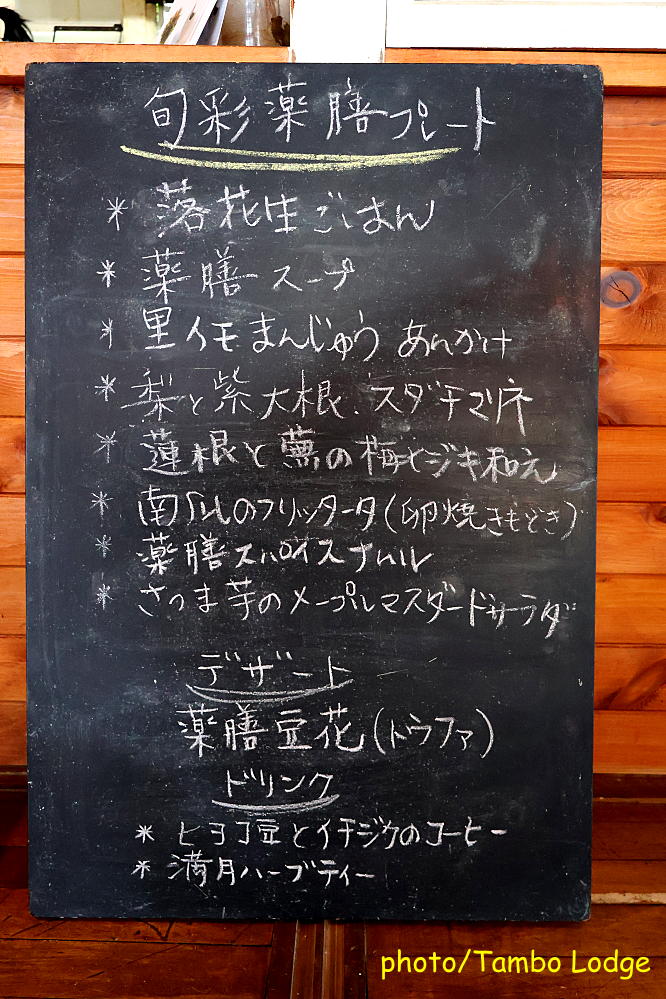 旬彩薬膳プレート
* 落花生ごはん
* 薬膳スープ
* 里イモまんじゅう あんかけ
* 梨と紫大根、スダチマリネ
* 蓮根と蕪の梅ヒジキ和え
* 南瓜のフリッタータ(卵焼きもどき)
* 薬膳スパイスナムル
* さつま芋のメープルマスタードサラダ
デザート
薬膳豆花(トウファ)
ドリンク
* ヒヨコ豆とイチジクのコーヒー
* 満月ハーブティー
photo/Tambo Lodge